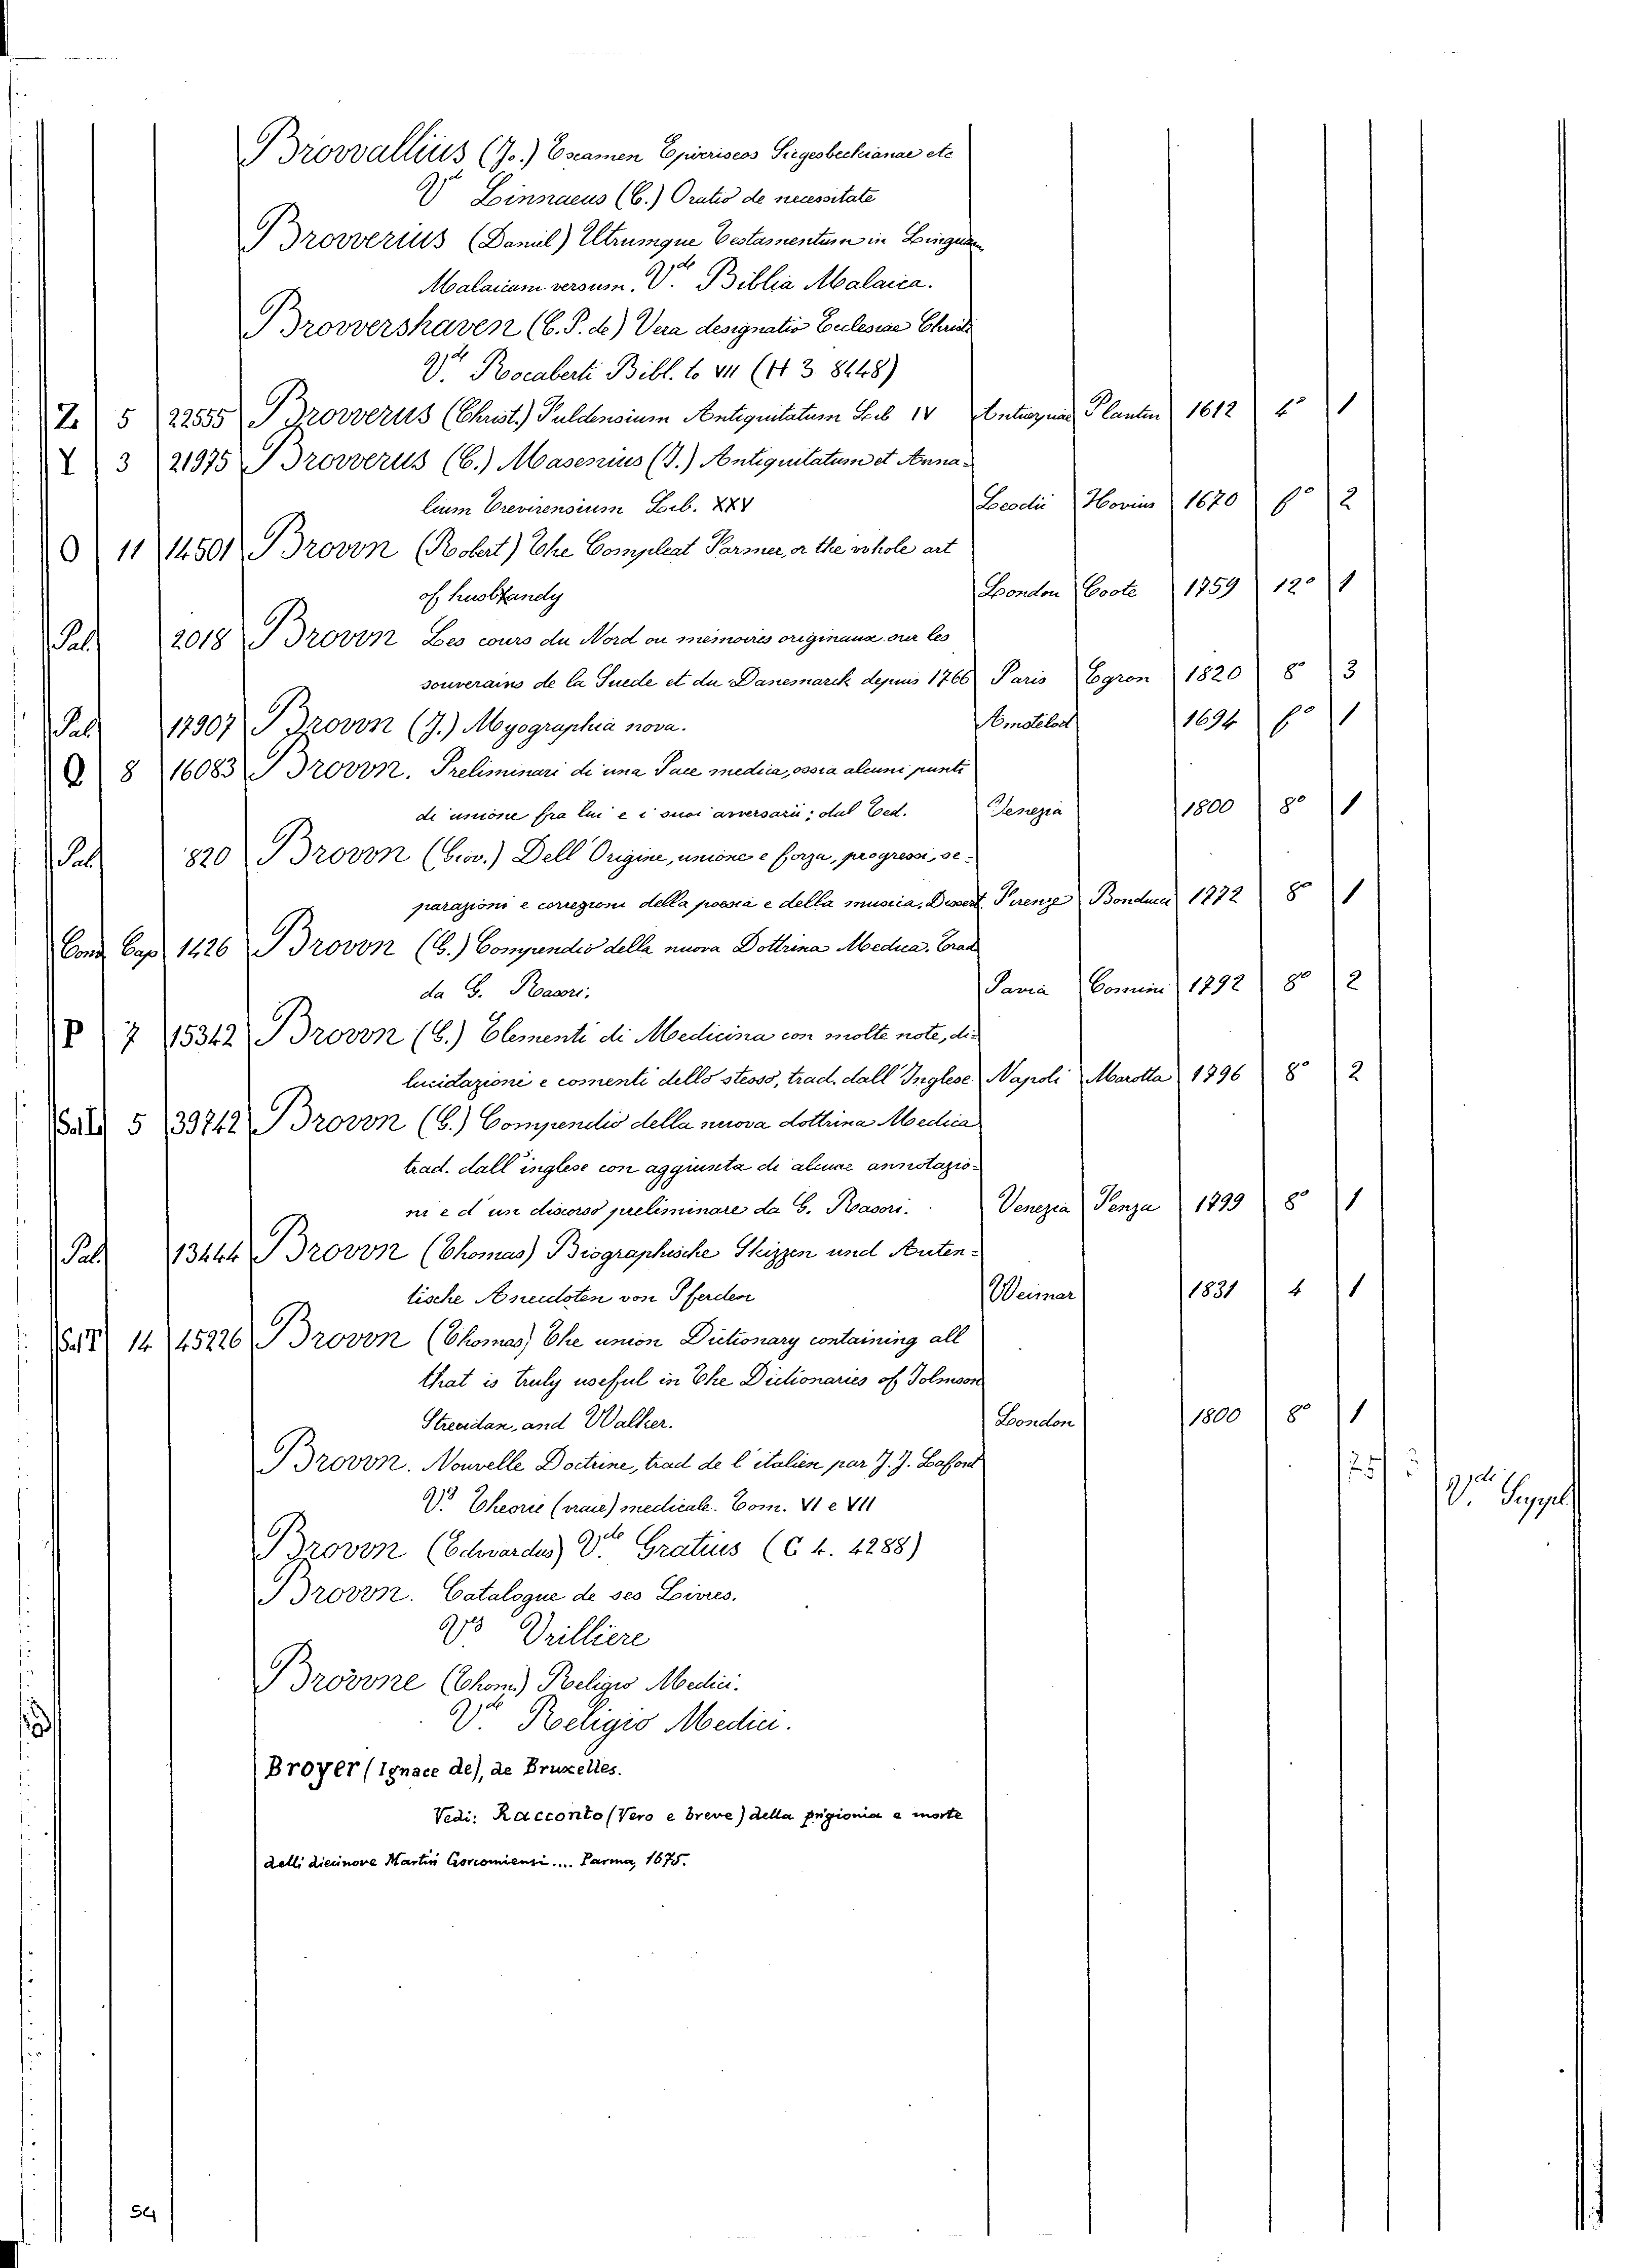 Browallius (Jo.) Examen Epicriseos Siegesbeckianae etc
Vde Linnaeus (C.) Oratio de necessitate
Browerius (Daniel) Utrumque Testamentum in Linguam
Malaicam versum. Vde Biblia Malaica.
Browershaven (C. P. de) Vera designatio Ecclesiae Christi
Vde Rocaberti Bibl. to VII (H 3 8448)
Z 5 22555 Browerus (Christ.) Fuldensium Antiquitatum Lib IV Antuerpiae Plantin 1612 4° 1
Y 3 21975 Browerus (C.) Masenius (J.) Antiquitatum et Anna-
lium Trevirensium Lib. XXV Leodii Hovius 1670 fo 2
O 11 14501 Brown (Robert) The Compleat Farmer, or the whole art
of husbandy London Coote 1759 12° 1
Pal. 2018 Brown Les cours du Nord ou mémoires originaux sur les
souverains de la Suede et du Danesmarck depuis 1766 Paris Egron 1820 8° 3
Pal 17907 Brown (J.) Myographia nova. Amstelod 1694 fo 1
Q 8 16083 Brown. Preliminari di una Pace medica, ossia alcuni punti
di unione fra lui e i suoi avversarii; dal Ted. Venezia 1800 8° 1
Pal. 820 Brown (Giov.) Dell' Origine, unione e forza, progressi, se-
parazioni e corregioni della poesia e della musica. Dissert. Firenze Bonducci 1772 8° 1
Cond Cap 1426 Brown (G.) Compendio della nuova Dottrina Medica. Trad
da G. Rasori. Pavia Comini 1792 8° 2
P 7 15342 Brown (G.) Elementi di Medicina con molte note, di-
lucidazioni e comenti dello stesso, trad. dall' Inglese. Napoli Marotta 1796 8° 2
Sal. 5 39742 Brown (G.) Compendio della nuova dottrina Medica
trad. dall' inglese con aggiunta di alcune annotazio-
ni e d' un discorso preliminare da G. Rasori. Venezia Penza 1799 8° 1
Pal. 13444 Brown (Thomas) Biographische Skizzen und Auten-
tische Anecdoten von Pferden Weimar 1831 4 1
14 45226 Brown (Thomas) The union Dictionary containing all
that is truly useful in The Dictionaries of Jolmson
and Walker. London 1800 8° 1
Brown. Nouvelle Doctrine, trad de l' italien par J. J. Lafont
Vde Theorie (vraie) medicale. Tom. VI e VII
Vdi Suppl.
Brown (Edwardus) Vde Gratius (C 4. 4288)
Brown. Catalogue de ses Livres.
Vde Vrilliere
Browne (Thom.) Religio Medici.
Vde Religio Medici.
Broyer (Ignace de), de Bruxelles.
Vedi: Racconto (Vero e breve) della prigionia e morte
delli diecinove Martiri Gorcomiensi.... Parma, 1675.
54